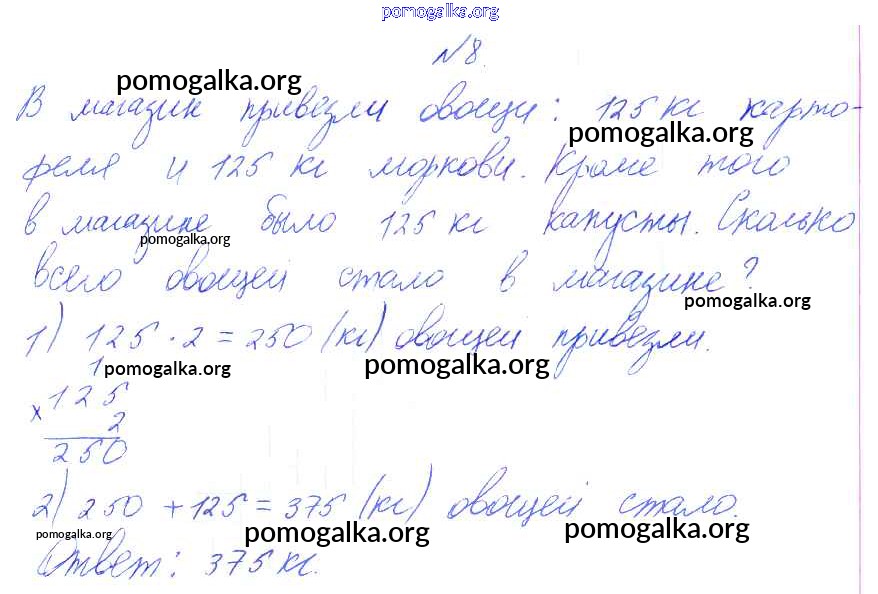 pomogalka.org
N8.
pomogalka.org
В магазин привезли овощи: 125 кг карто-
pomogalka.org
феля и 125 кг моркови. Кроме того
в магазине было 125 кг капусты. Сколько
pomogalka.org
всего овощей стало в магазине?
pomogalka.org
1) 125 · 2 = 250 (кг) овощей привезли.
1
pomogalka.org pomogalka.org
× 125
2
250
2) 250 + 125 = 375 (кг) овощей стало.
pomogalka.org pomogalka.org pomogalka.org
Ответ: 375 кг.